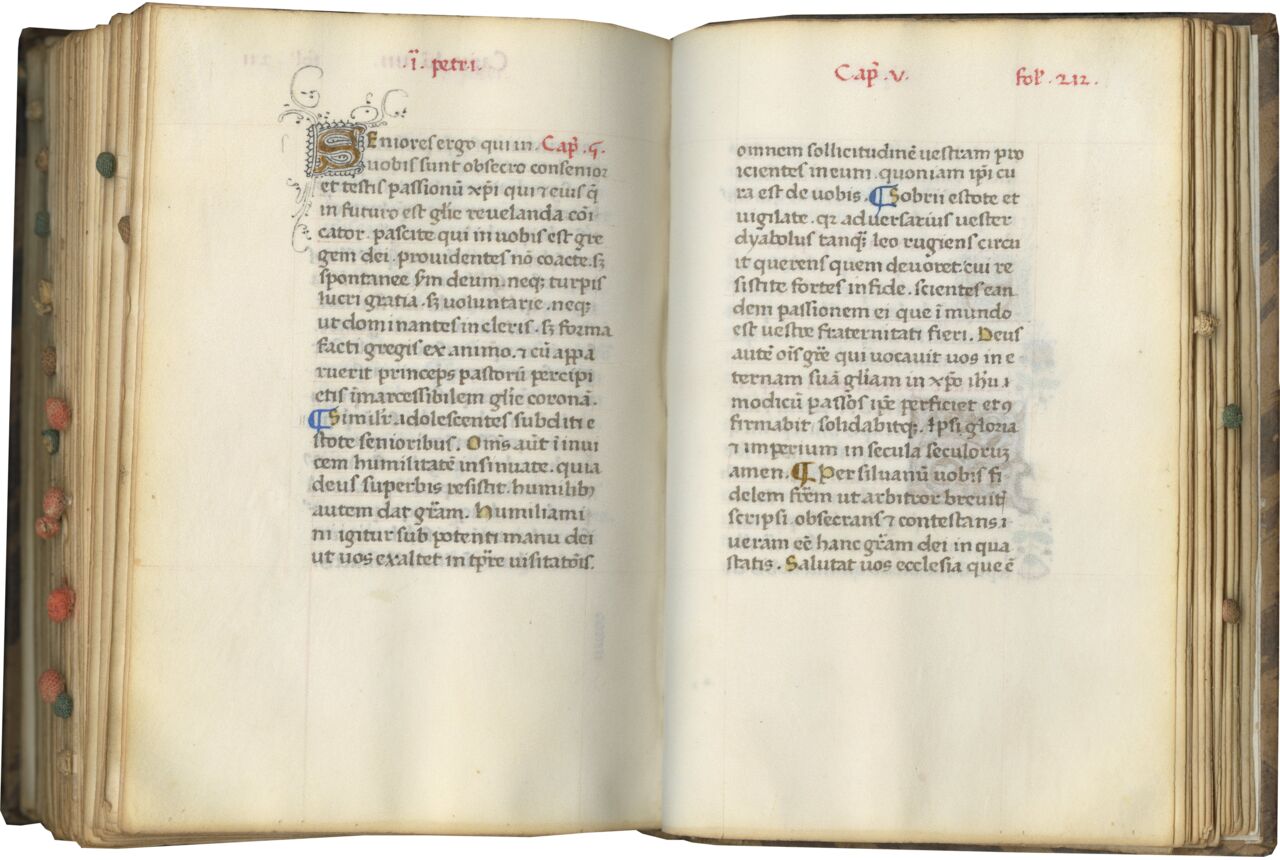 .i. petri.
Seniores ergo qui in Cap̃ .5.
uobis sunt obsecro consenior
et testis passionũ xp̃i qui ⁊ eius q̃
in futuro est gl̃ie revelanda cõi
cator. pascite qui in uobis est gre
gem dei. providentes nõ coacte. sꝫ
spontanee s̃m deum. neqꝫ turpis
lucri gratia. sꝫ voluntarie. neqꝫ
ut dominantes in cleris. sꝫ forma
facti gregis ex animo. ⁊ cũ appa
ruerit princeps pastorũ percipi
etis ĩmarcessibilem gl̃ie coronã.
¶ Similr̃. adolescentes subditi e
stote senioribus. Om̃s aũt ĩ inui
cem humilitatẽ insinuate. quia
deus superbis resistit. humilibꝫ
autem dat gr̃am. Humiliami
ni igitur sub potenti manu dei
ut uos exaltet in tp̃re uisitatõis.
Cap̃. v. fol̃. 212.
omnem sollicitudinẽ uestram pro
icientes in eum. quoniam ip̃i cu
ra est de uobis. ¶ Sobrii estote et
uigilate. qꝛ adversarius uester
dyabolus tanqꝫ leo rugiens circu
it querens quem devoret. cui re
sistite fortes in fide. scientes ean
dem passionem ei que ĩ mundo
est uestre fraternitati fieri. Deus
autẽ oĩs gr̃e qui vocavit uos in e
ternam suã gl̃iam in xp̃o ih̃u.
modicũ passõs ip̃e perficiet ⁊ ꝯ
firmabit solidabitqꝫ. Ipsi gloria
⁊ imperium in secula seculoruꝫ
amen. ¶ Per silvanũ uobis fi
delem fr̃em ut arbitror breuit̃
scripsi. obsecrans ⁊ contestans.
ueram eẽ hanc gr̃am dei in qua
statis. Salutat uos ecclesia que ẽ